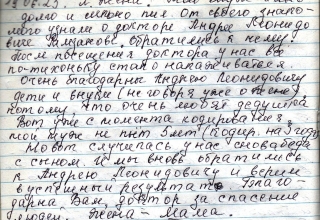 долго и много пил. От своего знако-
мого узнали о докторе Андрее Леонидо-
виче обратились к нему.
После посещения доктора у нас всё
по-тихоньку стало налаживаться.
Очень благодарны Андрею Леонидовичу
дети и внуки (не говоря уже о жене)
потому, что очень любят дедушку.
Вот уже с момента кодирования,
мой муж не пьёт 5 лет (кодир. на 5 год
Но вот случилась у нас снова беда
с сыном. И мы вновь обратились
к Андрею Леонидовичу и верим
в успешный результат. Благо-
дарна Вам, доктор за спасение
людей. Жена - Мама.